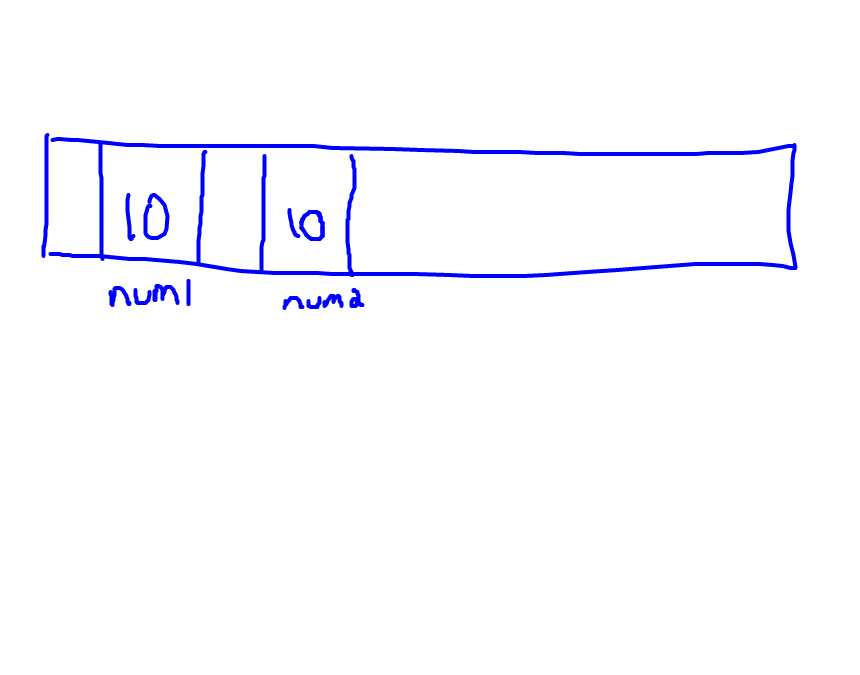 10 10
num1 num2